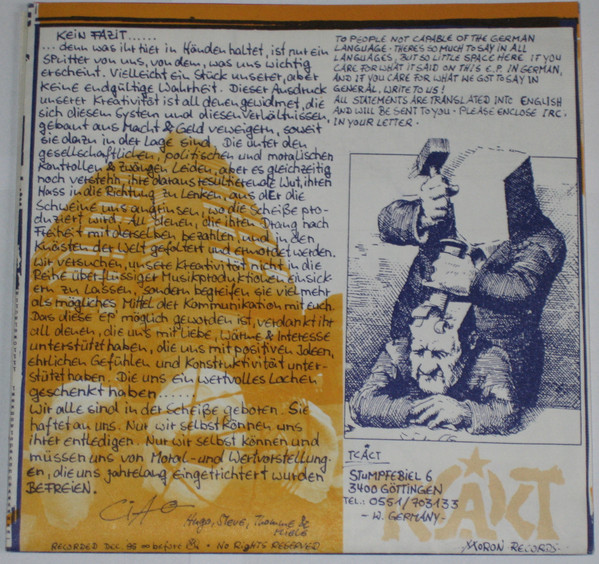 KEIN FAZIT......
.... denn was ihr hier in Händen haltet, ist nur ein
SPLITTER von uns, von dem, was uns wichtig
erscheint. Vielleicht ein Stück unserer, aber
keine endgültige Wahrheit. Dieser Ausdruck
unserer Kreativität ist all denen gewidmet, die
sich diesem System und diesen Verhältnissen,
gebaut aus Macht & Geld verweigern, soweit
sie dazu in der Lage sind. Die unter den
gesellschaftlichen, politischen und moralischen
Kontrollen & Zwängen Leiden, aber es gleichzeitig
noch verstehn, ihre daraus resultierende Wut, ihren
Hass in die Richtung zu Lenken, aus dEr die
Schweine uns angrinsen, wo die Scheiße pro-
duziert wird. All denen, die ihren Drang nach
Freiheit mit derselben bezahlen, und in den
Knästen der Welt gefoltert und ermordet werden.
Wir versuchen, unsere Kreativität nicht in die
Reihe überflüssiger Musikproduktionen einsick-
ern zu Lassen, sondern begreifen sie vielmehr
als mögliches Mittel der Kommunikation mit euch.
Das diese EP möglich geworden ist, verdankt ihr
all denen, die uns mit Liebe, Wärme & Interesse
unterstützt haben, die uns mit positiven Ideen,
ehrlichen Gefühlen und Konstruktivität unter-
stützt haben. Die uns ein wertvolles Lachen
geschenkt haben.......
Wir alle sind in der Scheiße geboren. Sie
haftet an uns. Nur wir selbst können uns
ihrer entledigen. Nur wir selbst können und
müssen uns von Moral- und Wertvorstellung-
en, die uns jahrelang eingetrichtert wurden
BEFREIEN.
CIAO
Hugo, Steve, Thomme &
RECORDED DEC. 86 - before • NO RIGHTS RESERVED
TO PEOPLE NOT CAPABLE OF THE GERMAN
LANGUAGE - THERES SO MUCH TO SAY IN ALL
LANGUAGES, BUT SO LITTLE SPACE HERE. IF YOU
CARE FOR WHAT IT SAID ON THIS E.P. IN GERMAN,
AND IF YOU CARE FOR WHAT WE GOT TO SAY IN
GENERAL, WRITE TO US!
ALL STATEMENTS ARE TRANSLATED INTO ENGLISH
AND WILL BE SENT TO YOU - PLEASE ENCLOSE IRC.
IN YOUR LETTER.
TCÁCT
STUMPFEBIEL 6
3400 GÖTTINGEN
TEL.: 0551/703133
- W. GERMANY -
KÁKT
MORON RECORDS